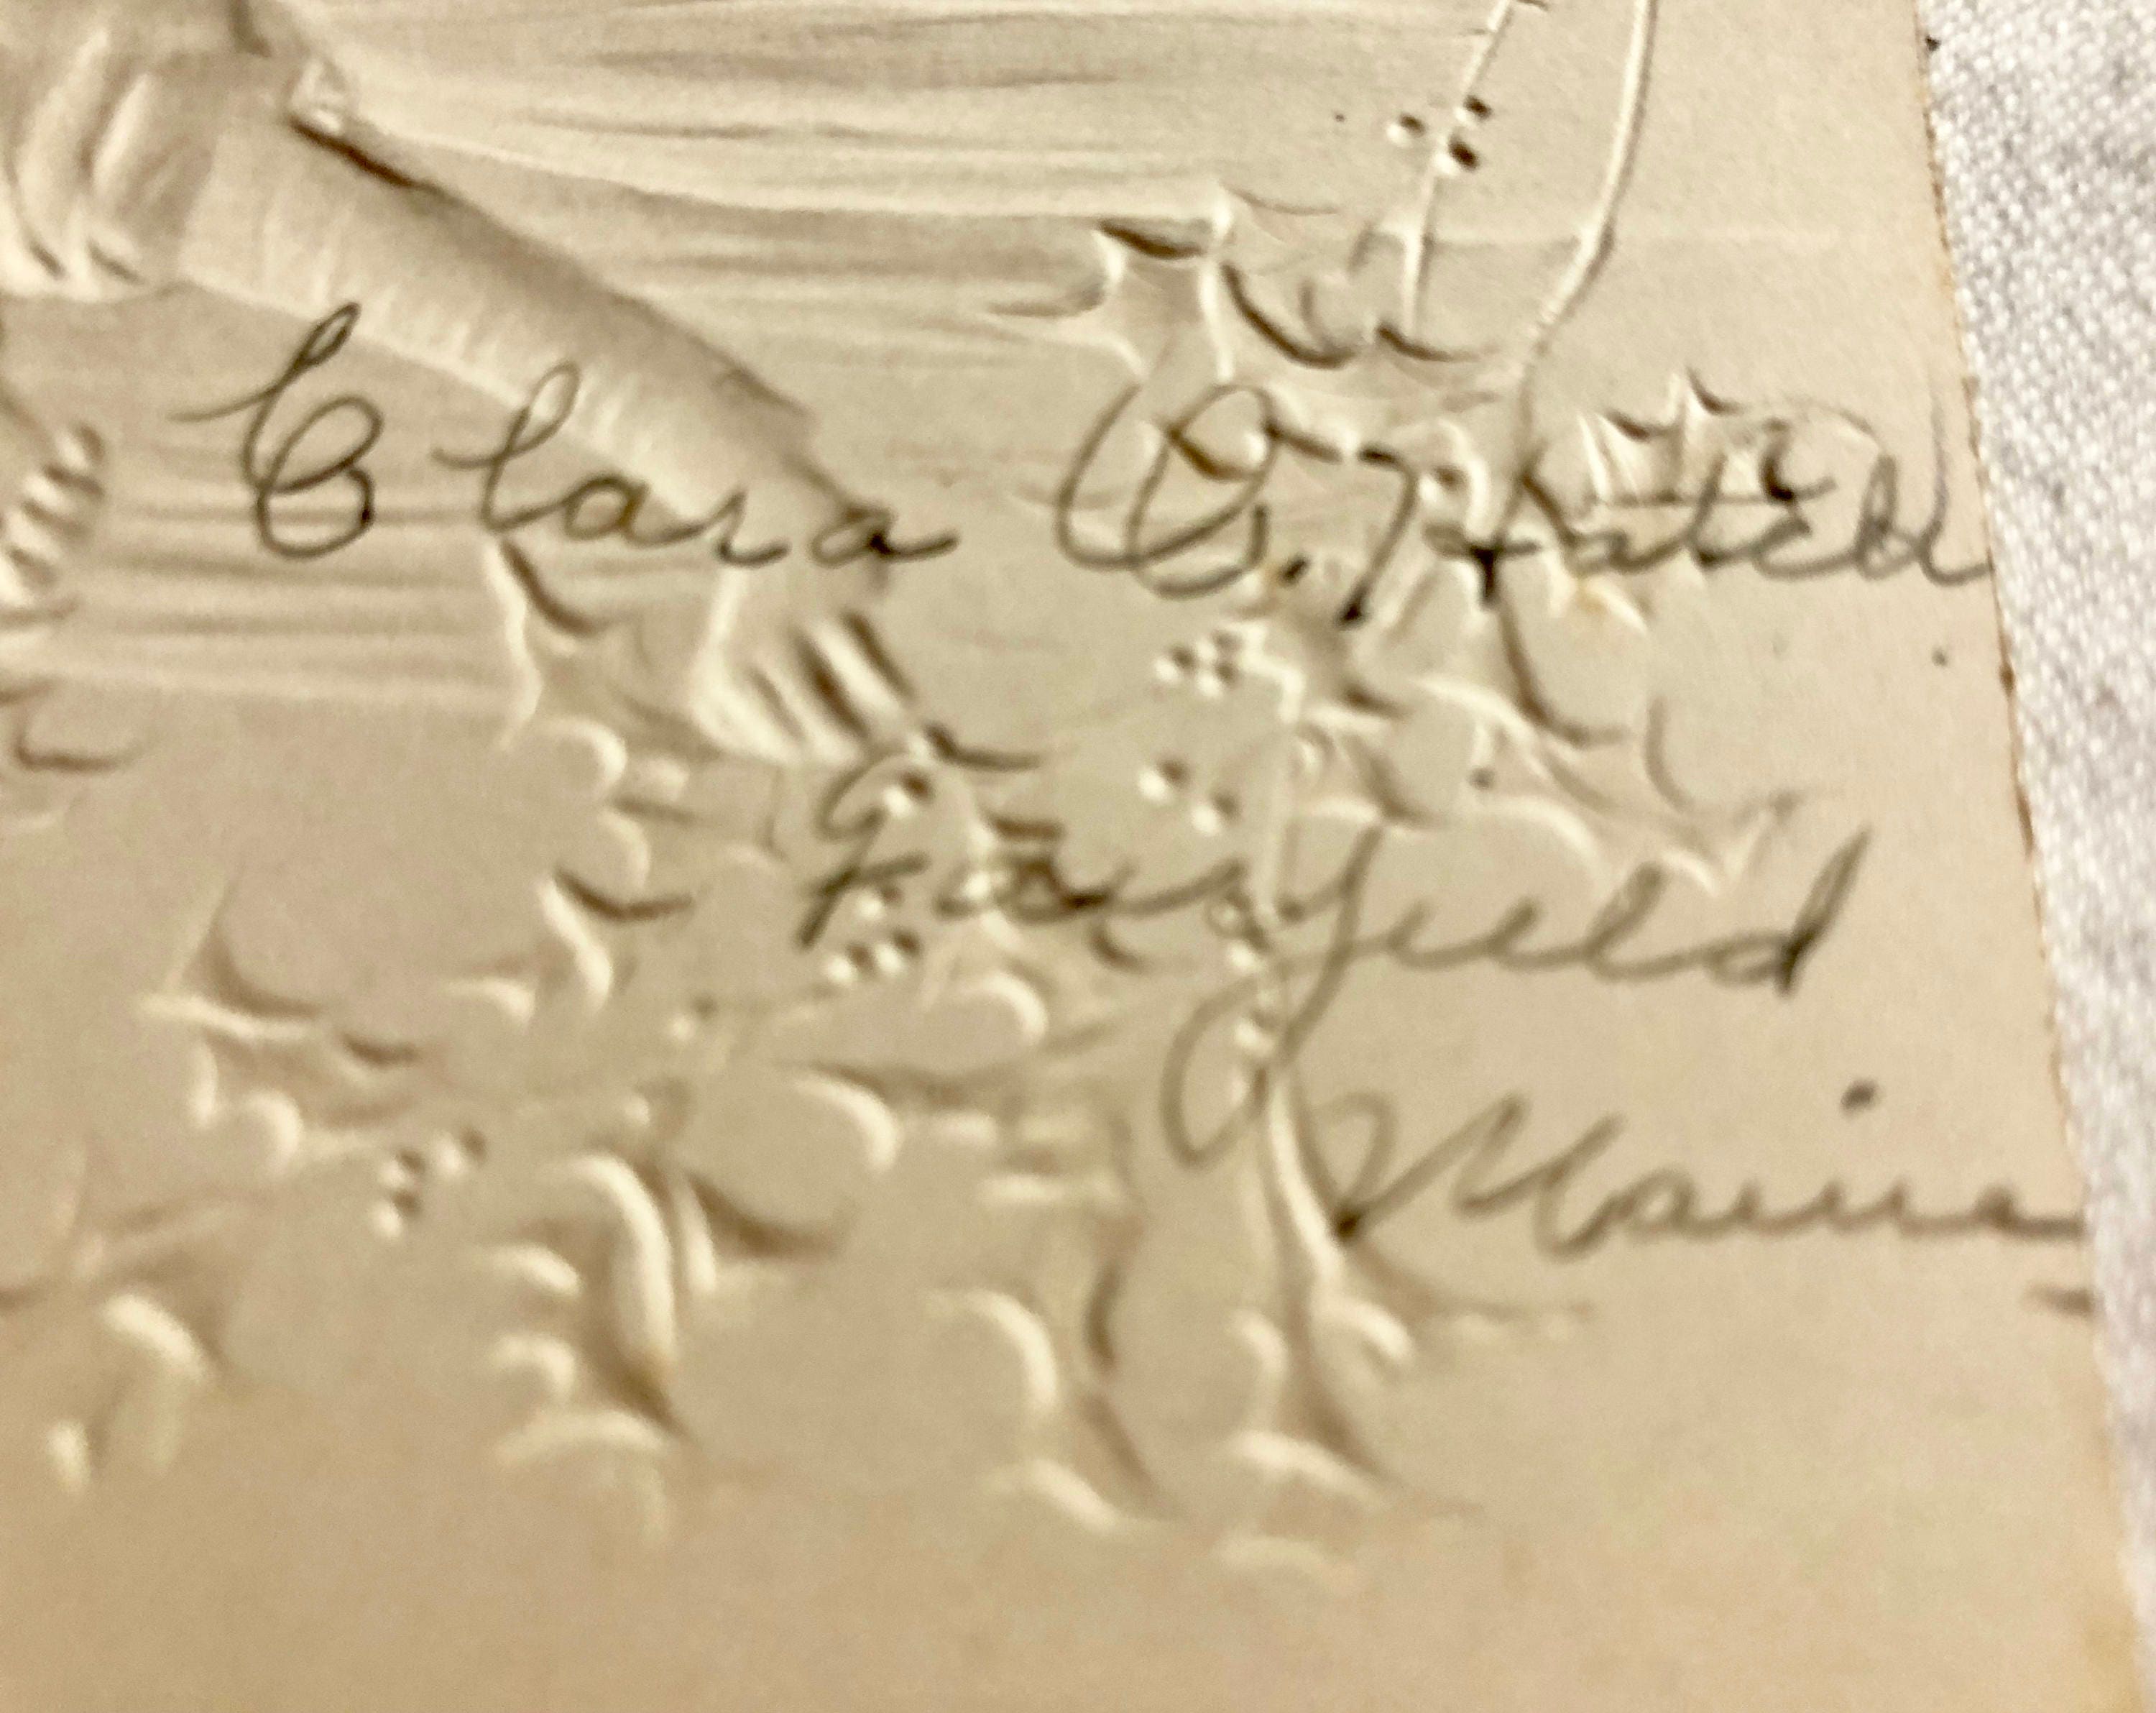 Clara O. Hatch
Fairfield
Maine